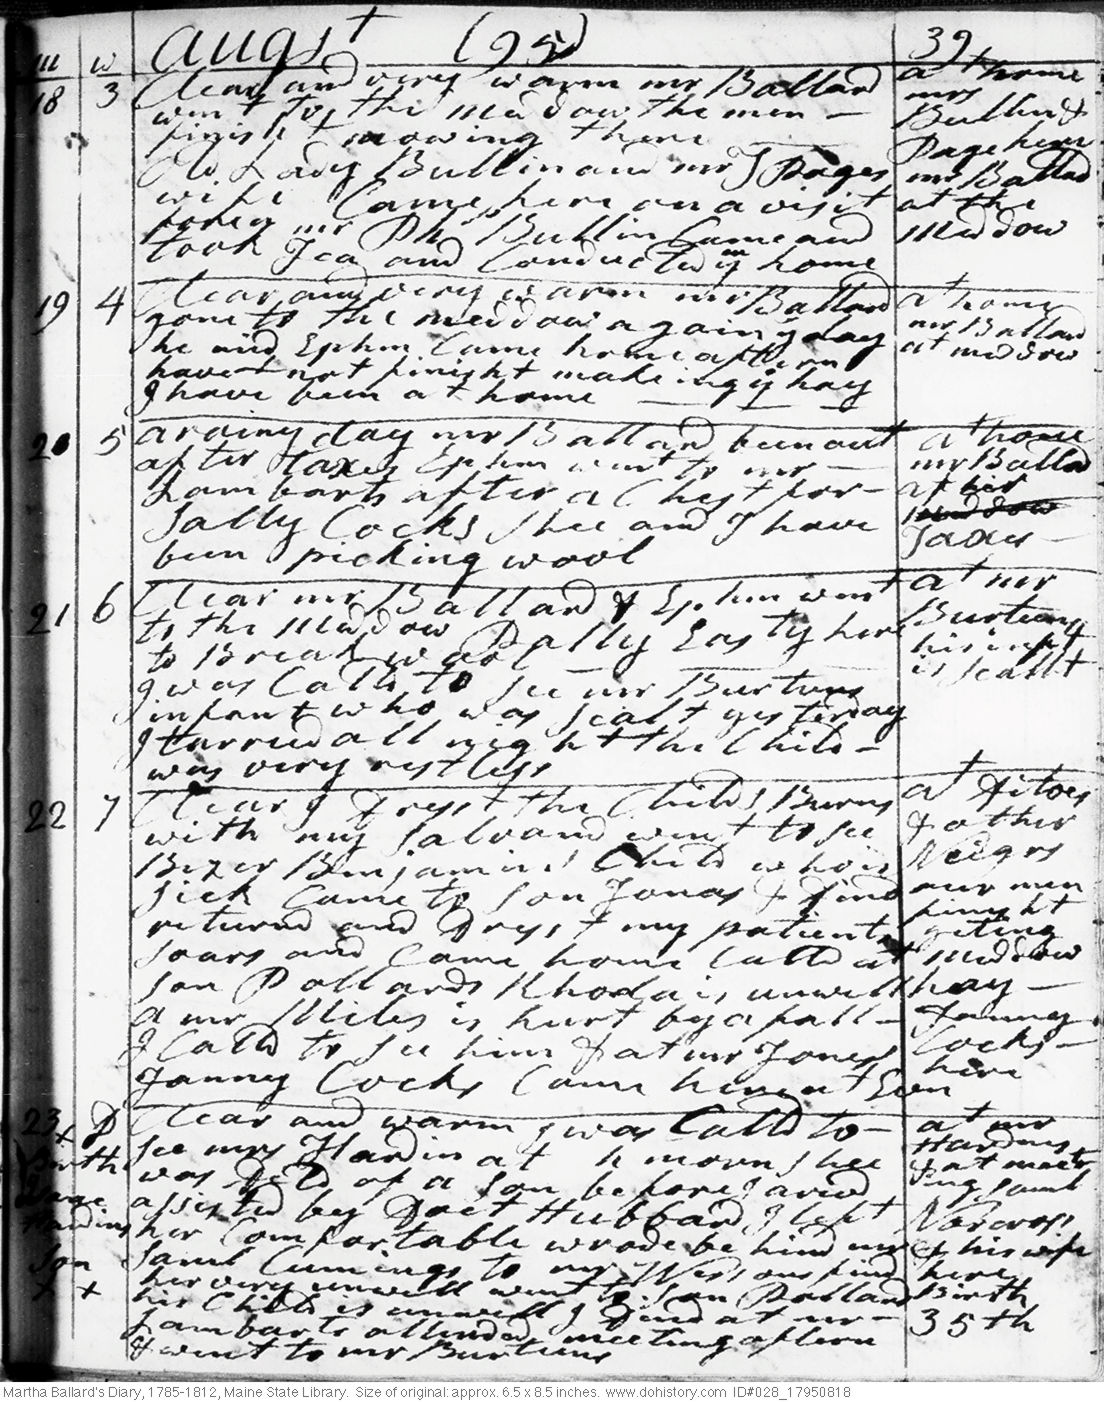 m w Augst (95) 39
18 3 Clear and very warm mr Ballard
went to the meddow the men -
finisht mowing there
old Lady Bullin and mr J Pages
wife Came here on a visit
mr Ph Bullin Came and
took Tea and Conducted ym home
at home
mrs
Bullin &
Page here
mr Ballad
at the
meddow
19 4 Clear and very warm mr Ballard
gone to the meddow again ys day
he and Ephm Came home aftern
have not finisht makeing ye hay
I have been at home
at home
mr Ballard
at meddow
20 5 a rainy day mr Ballard been out
after Taxes Ephm went to mr -
Lambarts after a Chest for -
Sally Cocks, shee and I have
been picking wool
at home
mr Ballad
after
meddow
Taxes -
21 6 Clear mr Ballard & Ephm went
to the meddow Dally Easty here
to Break wool
I was Calld to see mr Burtuns
infant who was scalt yesterday
I tarried all night the Child -
was very restless
at mr
Burtuns
his infnt
is scallt
22 7 Clear I Drest the Childs Burns
with my salv and went to see
Bezer Benjamins Child who is
sick Came to son Jonas & dind
returnd and Drest my patients
soars and Came home Calld at
son Pollards Rhoda is unwell
a mr Miles is hurt by a fall -
I Calld to see him & at mr Jones
Fanny Cocks Came here at Evn
at Titoes
& other
Neigrs
our men
finisht
geting
meddow
hay -
Fanny
Cocks -
here
23 D Clear and warm I was Calld to -
see mrs Hardin at h morn shee
was Deld of a son before I arivd
assisted by Doct Hubbard I left
her Comfortable wrode behind mr
Saml Cumings to mr Wesons find
her very unwell went to son Pollards
his Child is unwell I Dind at mr -
Lambarts attended meeting aftern
& went to mr Burtuns
x
Birth
Hardins
son
x x
at mr
Hardins
& at meet
ing Saml
Norcross
& his wife
here
Birth
35th
Martha Ballard's Diary, 1785-1812, Maine State Library. Size of original: approx. 6.5 x 8.5 inches. www.dohistory.com ID#028_17950818